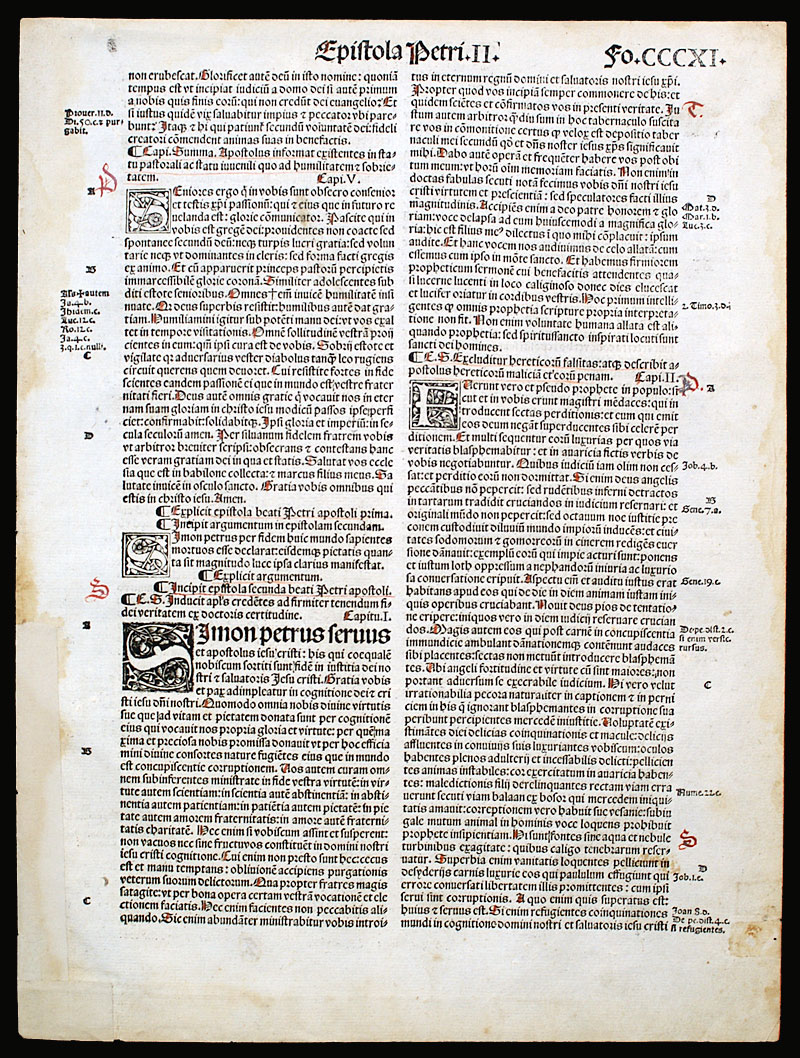 Epistola Petri.II.
Fo.CCCXI.
non erubescat. Glorificet autē deū in isto nomine: quoniā
tempus est vt incipiat iudiciū a domo dei si autē primum
a nobis quis finis eorū: qui non credūt dei euangelio? Et
si iustus quidē vix saluabitur impius & peccator vbi pare-
bunt? Itaq; & hi qui patiunt secundū voluntatē dei: fideli
creatori cōmendent animas suas in benefactis.
¶ Capi. Summa. Apostolus informat existentes in sta-
tu pastorali ac statu iuuenili quo ad humilitatem & sobrie-
tatem. Capi.V.
SEniores ergo q̄ in vobis sunt obsecro consenior
et testis xp̄i passionū: qui & eius que in futuro re
uelanda est: glorie cōmunicator. Pascite qui in
vobis est gregē dei: prouidentes non coacte sed
spontanee secundū deū: neq; turpis lucri gratia: sed volun
tarie neq; vt dominantes in cleris: sed forma facti gregis
ex animo. Et cū apparuerit princeps pastorū percipietis
immarcessibilē glorie coronā. Similiter adolescentes sub
diti estote senioribus. Omnes✝em̄ inuicē humilitatē insi
nuate. Qz deus superbis resistit: humilibus autē dat gra-
tiam. Humiliamini igitur sub potēti manu dei: vt vos exal
tet in tempore visitationis. Omnē solitudinē vestrā proij
cientes in eum: qm̄ ipsi cura est de vobis. Sobrij estote et
vigilate qz aduersarius vester diabolus tanq̄ leo rugiens
circuit querens quem deuoret. Cui resistite fortes in fide
scientes eandem passionē ei que in mundo est vestre frater
nitati fieri. Deus autē omnis gratie q̄ vocauit nos in eter
nam suam gloriam in christo iesu modicū passos ipse perfi
ciet: confirmabit: solidabitq;. Ipsi gloria et imperiū: in se-
cula seculorū amen. Per siluanum fidelem fratrem vobis
vt arbitror breuiter scripsi: obsecrans & contestans hanc
esse veram gratiam dei in qua et statis. Salutat vos eccle
sia que est in babilone collecta: & marcus filius meus. Sa
lutate inuicē in osculo sancto. Gratia vobis omnibus qui
estis in christo iesu. Amen.
¶ Explicit epistola beati Petri apostoli prima.
¶ Incipit argumentum in epistolam secundam.
SImon petrus per fidem huic mundo sapientes
mortuos esse declarat: eisdemq; pietatis quan-
ta sit magnitudo luce ipsa clarius manifestat.
¶ Explicit argumentum.
¶ Incipit epistola secunda beati Petri apostoli.
¶ E.S. Inducit apl̄s credētes ad firmiter tenendum fi-
dei veritatem ex doctoris certitudine. Capitu.I.
SImon petrus seruus
et apostolus iesu cristi: his qui coequalē
nobiscum sortiti sunt fidē in iustitia dei no
stri & saluatoris Jesu cristi. Gratia vobis
et pax adimpleatur in cognitione dei & cri
sti iesu dn̄i nostri. Quomodo omnia nobis diuine virtutis
sue que ad vitam et pietatem donata sunt per cognitionē
eius qui vocauit nos propria gloria et virtute: per quē ma
xima et preciosa nobis promissa donauit vt per hoc efficia
mini diuine consortes nature fugiētes eius que in mundo
est concupiscentie corruptionem. Vos autem curam om-
nem subinferentes ministrate in fide vestra virtutē: in vir-
tute autem scientiam: in scientia autē abstinentiā: in absti-
nentia autem patientiam: in patiētia autem pietatē: in pie
tate autem amorem fraternitatis: in amore autē fraterni-
tatis charitatē. Hec enim si vobiscum assint et superent:
non vacuos nec sine fructu vos constituēt in domini nostri
iesu cristi cognitione. Cui enim non presto sunt hec: cecus
est et manu temptans: obliuionē accipiens purgationis
veterum suorum delictorum. Qua propter fratres magis
satagite: vt per bona opera certam vestrā vocationē et ele
ctionem faciatis. Hec enim facientes non peccabitis ali-
quando. Sic enim abundāter ministrabitur vobis introi-
tus in eternum regnū domini et saluatoris nostri iesu xp̄i.
Propter quod vos incipiā semper commonere de his: et
quidem sciētes et cōfirmatos vos in presenti veritate. Ju
stum autem arbitror q̄ diu sum in hoc tabernaculo suscita
re vos in cōmonitione certus q̄ velox est depositio taber
naculi mei secundū qd̄ et dn̄s noster iesus xp̄s significauit
mihi. Dabo autē operā et frequēter habere vos post obi
tum meum: vt horū oīm memoriam faciatis. Non enim in
doctas fabulas secuti notā fecimus vobis dn̄i nostri iesu
cristi virtutem et prescientiā: sed speculatores facti illius
magnitudinis. Accipiēs enim a deo patre honorem & glo
riam: voce delapsa ad eum huiuscemodi a magnifica glo-
ria: hic est filius me⁹ dilectus ī quo mihi cōplacuit: ipsum
audite. Et hanc vocem nos audiuimus de celo allatā: cum
essemus cum ipso in mōte sancto. Et habemus firmiorem
propheticum sermonē cui benefacitis attendentes qua-
si lucerne lucenti in loco caliginoso donec dies elucescat
et lucifer oriatur in cordibus vestris. Hoc primum intelli-
gentes q̄ omnis prophetia scripture propria interpreta-
tione non fit. Non enim voluntate humana allata est ali-
quando prophetia: sed spiritusancto inspirati locuti sunt
sancti dei homines.
¶ E.S. Excluditur hereticorū falsitas: atq; describit a-
postolus hereticorū malicia et eorū penam. Capi.II.
FUerunt vero et pseudo prophete in populo: si
cut et in vobis erunt magistri mēdaces: qui in
troducent sectas perditionis: et eum qui emit
eos deum negāt superducentes sibi celerē per
ditionem. Et multi sequentur eorū luxurias per quos via
veritatis blasphemabitur: et in auaricia fictis verbis de
vobis negotiabuntur. Quibus iudiciū iam olim non ces-
sat: et perditio eorū non dormitat. Si enim deus angelis
peccātibus nō pepercit: sed rudētibus inferni detractos
in tartarum tradidit cruciandos in iudicium reseruari: et
originali mūdo non pepercit: sed octauum noe iustitie pre
conem custodiuit diluuiū mundo impiorū inducēs: et ciui-
tates sodomorum & gomoreorū in cinerem redigēs euer
sione dānauit: exemplū eorū qui impie acturi sunt: ponens
et iustum loth oppressum a nephandorū iniuria ac luxurio
sa conuersatione eripuit. Aspectu em̄ et auditu iustus erat
habitans apud eos qui de die in diem animam iustam ini-
quis operibus cruciabant. Nouit deus pios de tentatio-
ne eripere: iniquos vero in diem iudicij reseruare crucian
dos. Magis autem eos qui post carnē in concupiscentia
immundicie ambulant dānationemq; contēnunt audaces
sibi placentes: sectas non metuūt introducere blasphemā
tes. Ubi angeli fortitudine et virtute cū sint maiores: non
portant aduersum se execrabile iudicium. Hi vero velut
irrationabilia pecora naturaliter in captionem & in perni
ciem in his q̄ ignorant blasphemantes in corruptione sua
peribunt percipientes mercedē iniustitie. Voluptatē exi-
stimātes diei delicias coinquinationis et macule: delicijs
affluentes in conuiuijs suis luxuriantes vobiscum: oculos
habentes plenos adulterij et incessabilis delicti: pellicien
tes animas instabiles: cor exercitatum in auaricia haben-
tes: maledictionis filij derelinquentes rectam viam erra
uerunt secuti viam balaan ex bosor qui mercedem iniqui-
tatis amauit: correptionem vero habuit sue vesanie: subiu
gale mutum animal in hominis voce loquens prohibuit
prophete insipientiam. Hi sunt fontes sine aqua et nebule
turbinibus exagitate: quibus caligo tenebrarum reser-
uatur. Superbia enim vanitatis loquentes pellicunt in
desyderijs carnis luxurie eos qui paululum effugiunt qui
errore conuersati libertatem illis promittentes: cum ipsi
serui sint corruptionis. A quo enim quis superatus est:
huius & seruus est. Si enim refugientes coinquinationes
mundi in cognitione domini nostri et saluatoris iesu cristi
Prouer.11.d.
Di.50.c.& pur-
gabit.
A
B
Als✝autem
Ja.4.b.
Luc.12.c.
Ro.12.c.
Ja.4.c.
C
D
S
A
B
C
T.
D
Mat.3.d.
Mar.1.b.
Luc.3.c.
2.Timo.3.d.
P.
A
Job.4.b.
B
Gene.7.a.
Gene.19.c.
De pe.dist.2.c.
si enim versic.
rursus.
C
Nume.22.c.
S
D
Job.1.c.
Joan 8.d.
De pe.dist.4.c.
si refugientes.